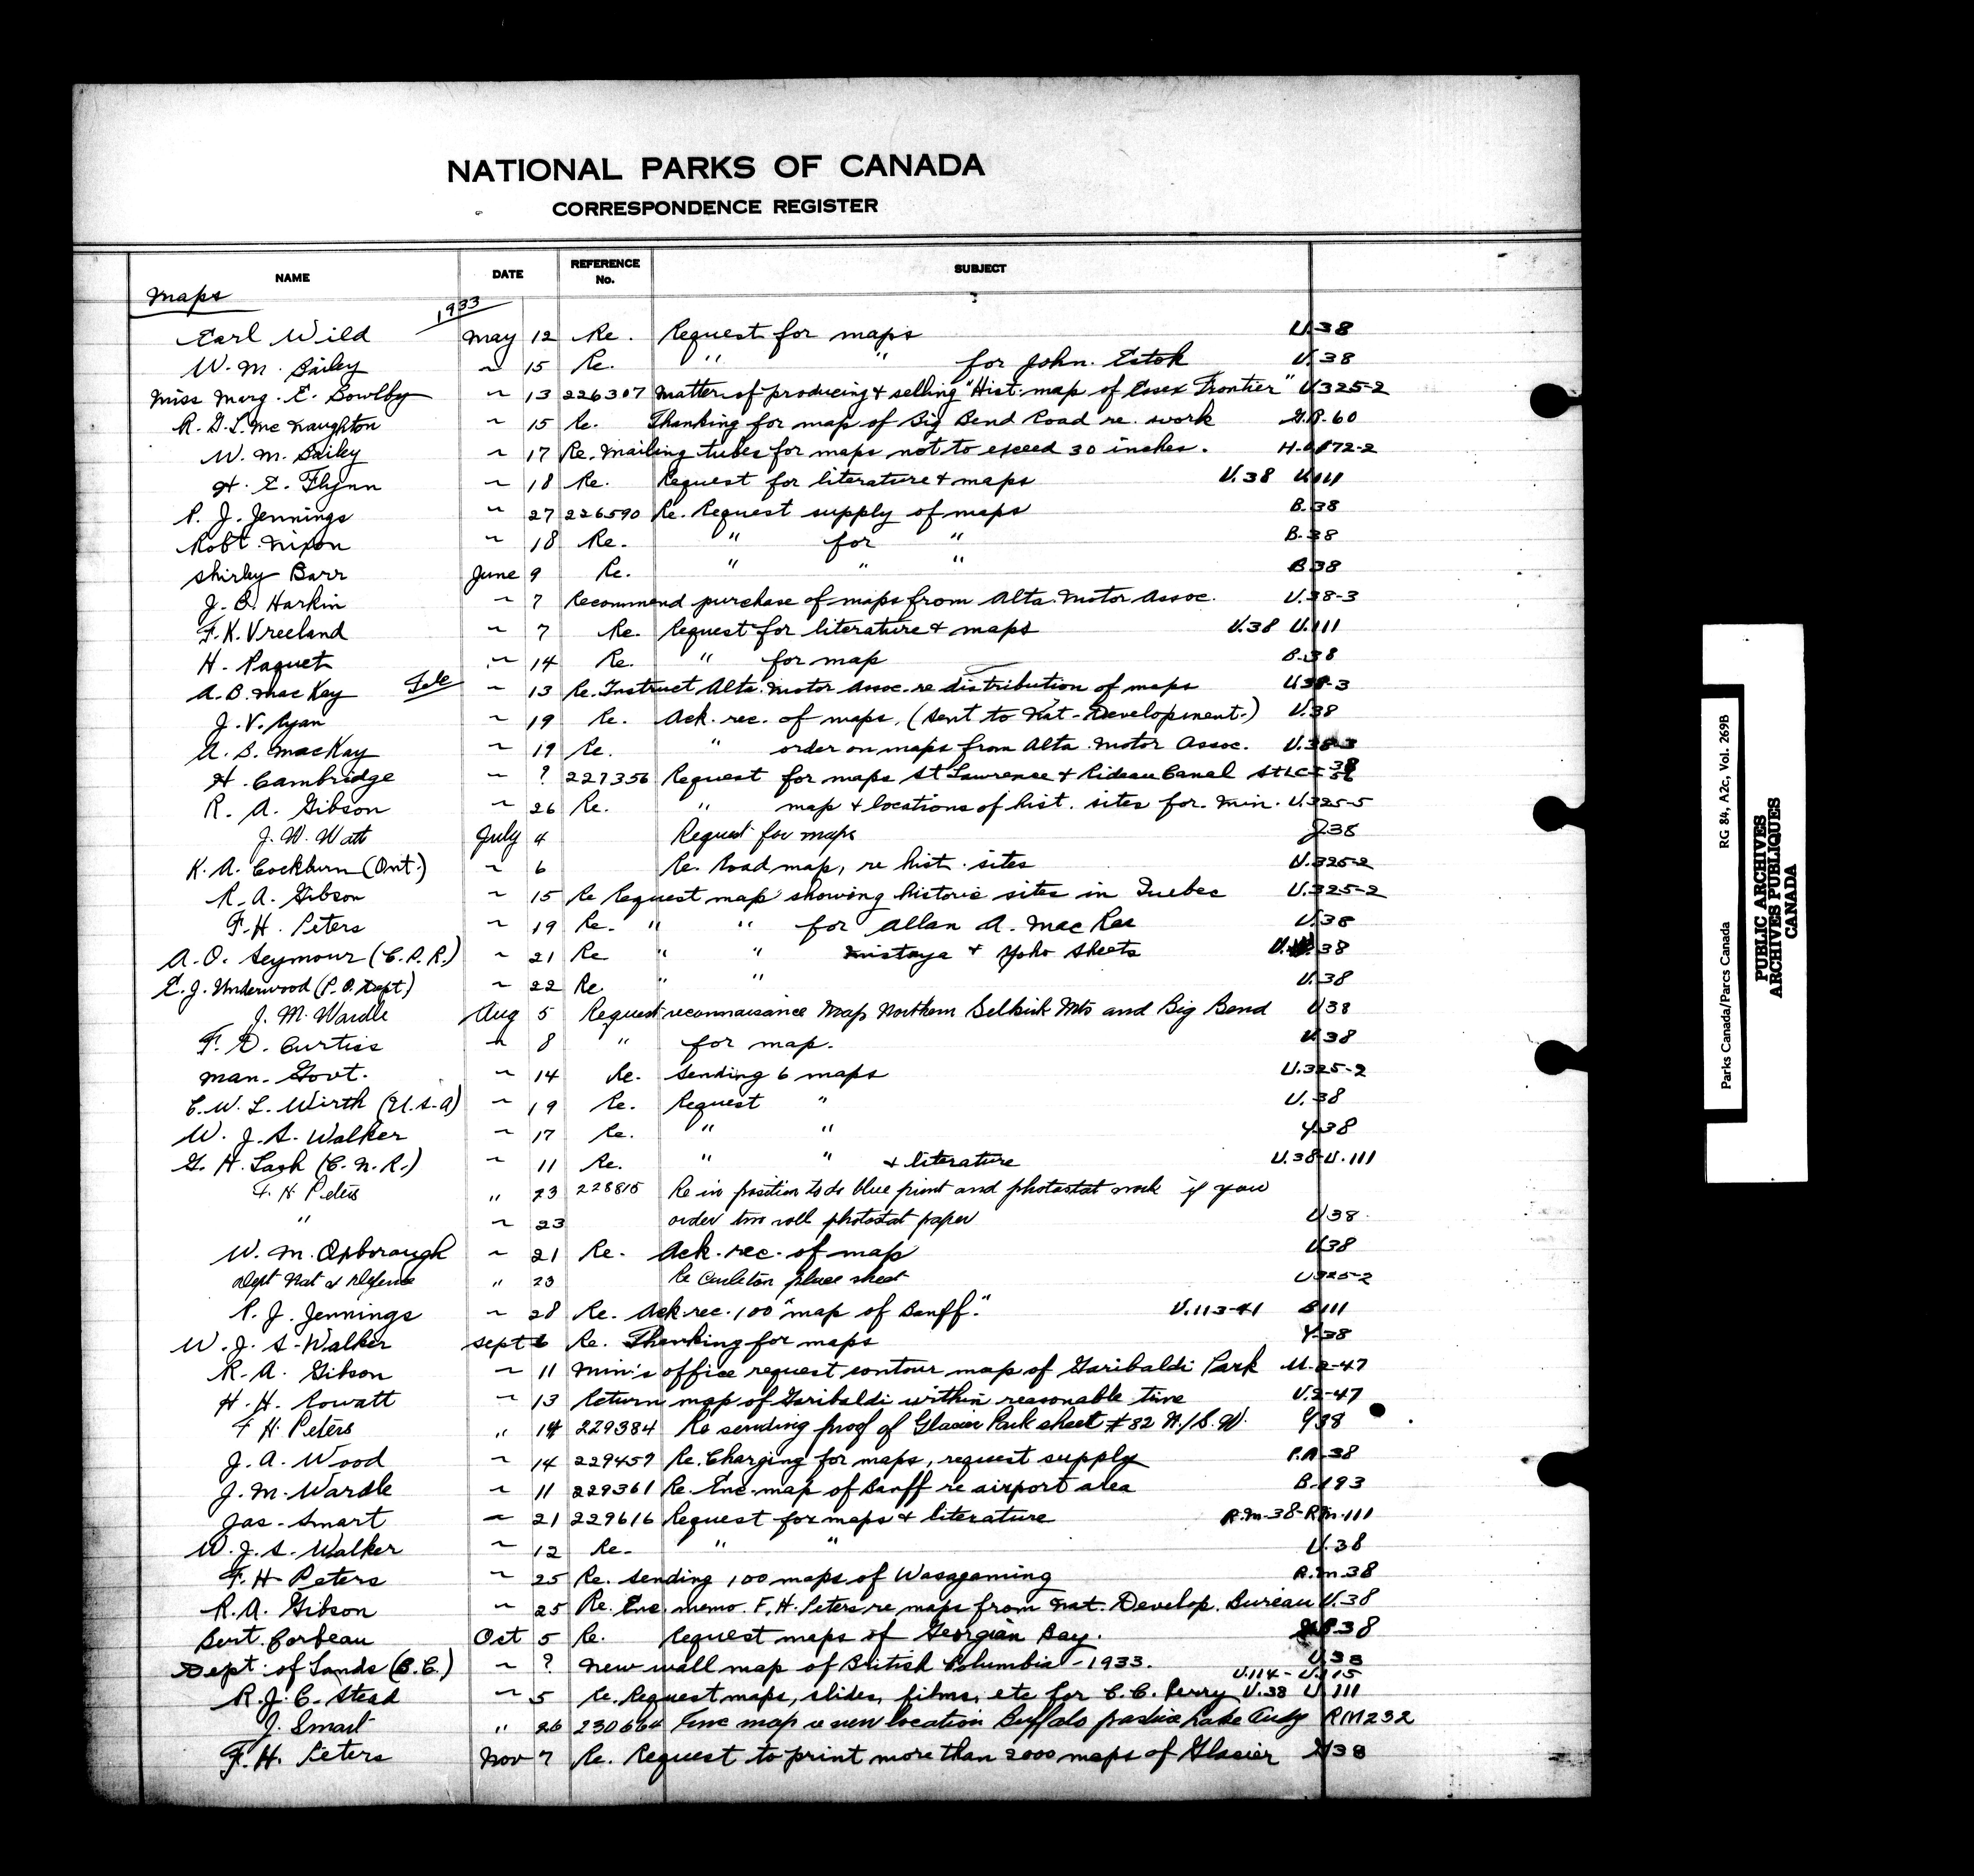 NATIONAL PARKS OF CANADA
CORRESPONDENCE REGISTER
NAME DATE REFERENCE No. SUBJECT
Maps 1933
Earl Wild May 12 Re. Request for maps U.38
W. M. Bailey " 15 Re. " " for John. Estok U.38
Miss Marg. E. Bowlby " 13 226307 Matter of producing & selling "Hist. map of Essex Frontier" U325-2
R. G. L. McNaughton " 15 Re. Thanking for map of Big Bend Road re. work G.R.60
W. M. Bailey " 17 Re. Mailing tubes for maps not to exceed 30 inches. 
H. E. Flynn " 18 Re. Request for literature & maps U.38 U.111
P. J. Jennings " 27 226590 Re. Request supply of maps B.38
Robt. Nixon " 18 Re. " for " B.38
Shirley Barr June 9 Re. " " " B38
J. B. Harkin " 7 Recommend purchase of maps from Alta. Motor Assoc. U.38-3
F. K. Vreeland " 7 Re. Request for literature & maps U.38 U.111
H. Paquet " 14 Re. " for map B.38
A. B. MacKay " 13 Re. Instruct Alta. Motor Assoc. re distribution of maps U38-3
J. V. Ryan " 19 Re. Ack. rec. of maps. (Sent to Nat-Development.) U.38
A. B. MacKay " 19 Re. " order on maps from Alta. Motor Assoc. U.38-3
H. Cambridge " ? 227356 Request for maps St Lawrence & Rideau Canal
R. A. Gibson " 26 Re. " map & locations of hist. sites for. Min. U.325-5
J. W. Watt July 4 Request for maps J38
K. A. Cockburn (Ont.) " 6 Re. Road map, re hist. sites U.325-2
R. A. Gibson " 15 Re Request map showing historic sites in Quebec U.325-2
F. H. Peters " 19 Re. " " for Allan A. MacRae U.38
A. O. Seymour (C.P.R.) " 21 Re " " Mistaya & Yoho Sheets U.38
E. J. Underwood (P.O. Dept) " 22 Re. " " U.38
J. M. Wardle Aug 5 Request reconnaisance Map Northern Selkirk Mts and Big Bend U38
F. D. Curtiss " 8 " for map. U.38
Man. Govt. " 14 Re. Sending 6 maps U.325-2
C. W. L. Wirth (U.S.A) " 19 Re. Request " U.38
W. J. S. Walker " 17 Re. " " Y38
G. H. Lash (C.N.R.) " 11 Re. " " & literature U.38-U.111
F. H. Peters " 23 228815 Re in position to do blue print and photostat work if you
" " 23 order two roll photostat paper U38
W. M. Oxborough " 21 Re. Ack. rec. of map U38
Dept Nat & Defence " 23 Re Carleton place sheet U325-2
P. J. Jennings " 28 Re. Ack. rec. 100 "map of Banff." U.113-41 B111
W. J. S. Walker Sept 6 Re. Thanking for maps Y.38
R. A. Gibson " 11 Min's office request contour map of Garibaldi Park U.2-47
H. H. Rowatt " 13 Return map of Garibaldi within reasonable time U.2-47
F. H. Peters " 14 229384 Re sending proof of Glacier Park sheet #82 N./S.W. G38
J. A. Wood " 14 229457 Re. Charging for maps, request supply P.A.38
J. M. Wardle " 11 229361 Re. Enc. map of Banff re airport area B.193
Jas. Smart " 21 229616 Request for maps & literature R.M.38-RM.111
W. J. S. Walker " 12 Re. " " U.38
F. H. Peters " 25 Re. Sending 100 maps of Wasagaming R.M.38
R. A. Gibson " 25 Re. Enc. memo. F. H. Peters re maps from Nat. Develop. Bureau U.38
Bert. Corbeau Oct 5 Re. Request maps of Georgian Bay. 38
Dept. of Lands (B.C.) " ? New wall map of British Columbia - 1933. U.38
R. J. C. Stead " 5 Re. Request maps, slides, films, etc for C. C. Perry U.38 U.111 U.114-U.115
J. Smart " 26 230664 Enc map re new location Buffalo pasture Lake Audy RM232
F. H. Peters Nov 7 Re. Request to print more than 2000 maps of Glacier G38
Parks Canada/Parcs Canada RG 84, A2c, Vol. 269B
PUBLIC ARCHIVES
ARCHIVES PUBLIQUES
CANADA